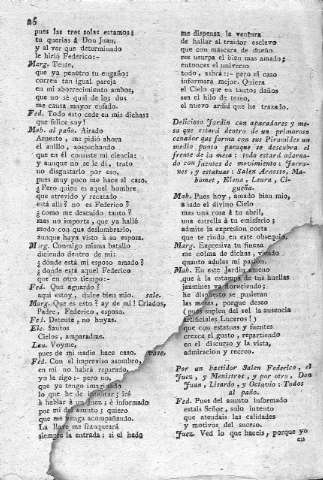 26
pues las tres solas estamos;
tu querias á Don Juan,
y al ver que determinado
le hirió Federico:-
Marg. Tente,
que ya penetro tu engaño;
corren tan igual pareja
en mi aborrecimiento ambos,
que no sé qual de los dos
me causa mayor enfado.
Fed. Todo esto cede en mis dichas:
que felice soy!
Mah. al paño. Airado
Aspecto, me pidió ahora
el anillo, sospechando
que en él consiste mi ciencia;
y aunque no se le dí, trato
no disgustarlo por eso,
pues muy poco me hace al caso.
¿Pero quien es aquel hombre,
que atrevido y recatado
está allí? no es Federico?
¿como me descuido tanto?
mas no importa, que ya hallé
modo con que deslumbrarlo,
aunque haya visto á su esposa.
Marg. Conmigo misma batallo
diciendo dentro de mí:
¿dónde está mi esposo amado?
¿donde está aquel Federico
que en otro tiempo:-
Fed. Qué aguardo?
aquí estoy, dulce bien mio. sale.
Marg. Que es esto? ay de mí! Criados,
Padre, Federico, esposa.
Fed. Detente, no huyas.
Ele. Santos
Cielos, amparadme.
Lau. Voyme,
pues de mí nadie hace caso.
Fed. Con el improviso asombro,
en mí no habrá reparado,
yo le sigo:- pero no,
que ya tengo
lo que he de
á hablar á un Juez, é informado
por mí de asunto; quiero
que me venga acompañando.
La llave me franqueará
siempre la entrada: si el hado
me dispensa la ventura
de hallar al traidor esclavo
que con máscara de dueño
me usurpa el bien mas amado;
entonces el universo
todo, sabrá:- pero el caso
informará mejor. Quiera
el Cielo que en tantos daños
sea el hilo de temo,
el nuevo ardid que he trazado.
Delicioso Jardin con aparadores y mesa que estará dentro de un primoroso
cenador que forma con sus Pirámides un
medio punto paraque se descubra el
frente de la mesa: todo estará adornado con juegos de movimiento: Jarrones, y estatuas: Salen Arnesto, Mahomet, Elena, Laura, Cigueña.
Mah. Pues hoy, amado bien mio,
á sido el divino Cielo
mas una rosa á tu abril,
una estrella á tu emisferio;
admite la expresion corta
que te rindo en este obsequio.
Marg. Expresiva tu fineza
me colma de dichas, viendo
quanto adulas mi pasion.
Mah. En este Jardin ameno
que á la estampa de tus huellas
jazmines va floreciendo;
he dispuesto se pusieran
las mesas, porque deseo
(pues suplen del sol la ausencia
artificiales Luceros!)
que con estatuas y fuentes
crezca el gusto, repartiendo
en el discurso y la vista,
admiracion y recreo.
Por un bastidor Salen Federico, el
Juez, y Ministros, y por otro, Don
Juan, Lisardo, y Octavio: Todos
al paño.
Fed. Pues del asunto informado
estais Señor, solo intento
que atendais las calidades
y motivos del suceso.
Juez. Ved lo que haceis, porque yo
en